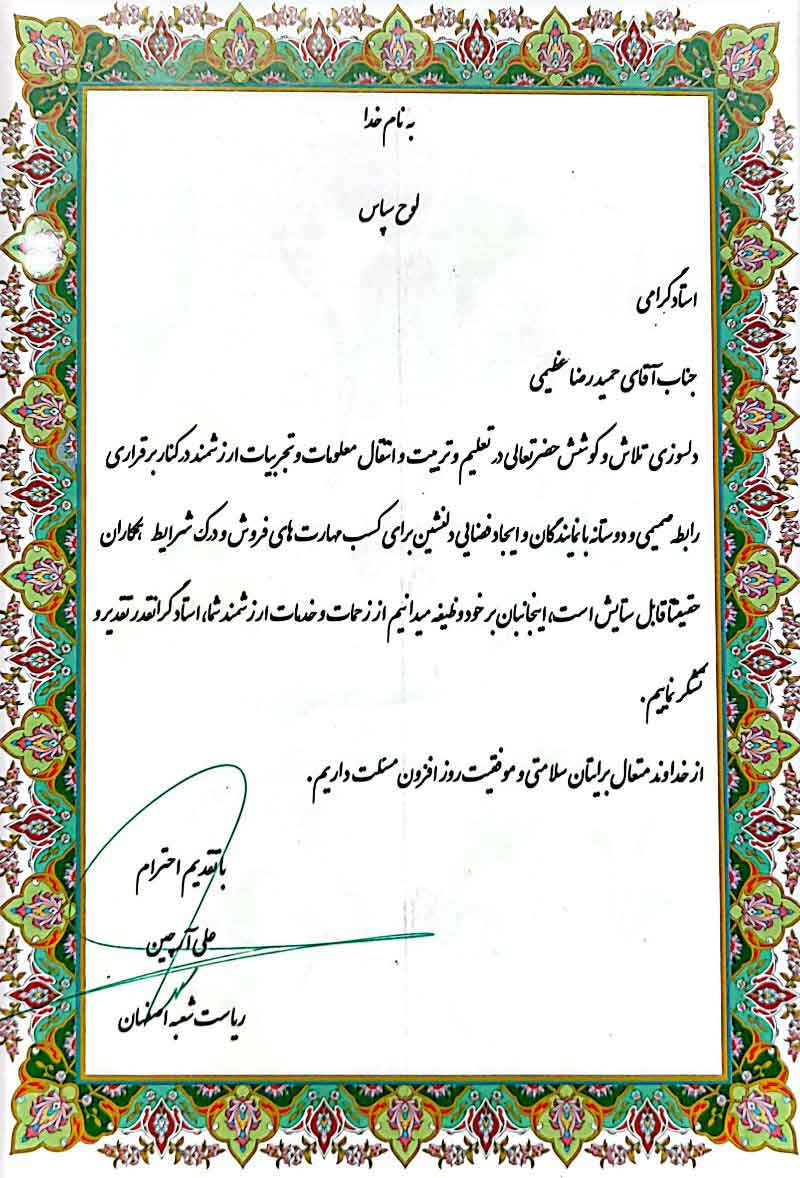 به نام خدا
لوح سپاس
استاد گرامی
جناب آقای حمید رضا عظیمی
دلسوزی تلاش و کوشش حضرتعالی در تعلیم و تربیت و انتقال معلومات و تجربیات ارزشمند در کنار برقراری
رابطه صمیمی و دوستانه با نمایندگان و ایجاد فضایی دلنشین برای کسب مهارت های فروش و درک شرایط همکاران
حقیقتا قابل ستایش است، اینجانبان بر خود وظیفه میدانیم از زحمات و خدمات ارزشمند شما، استاد گرانقدر تقدیر و
تشکر نماییم.
از خداوند متعال برایتان سلامتی و موفقیت روز افزون مسئلت داریم.
با تقدیم احترام
علی آرچین
ریاست شعبه اصفهان